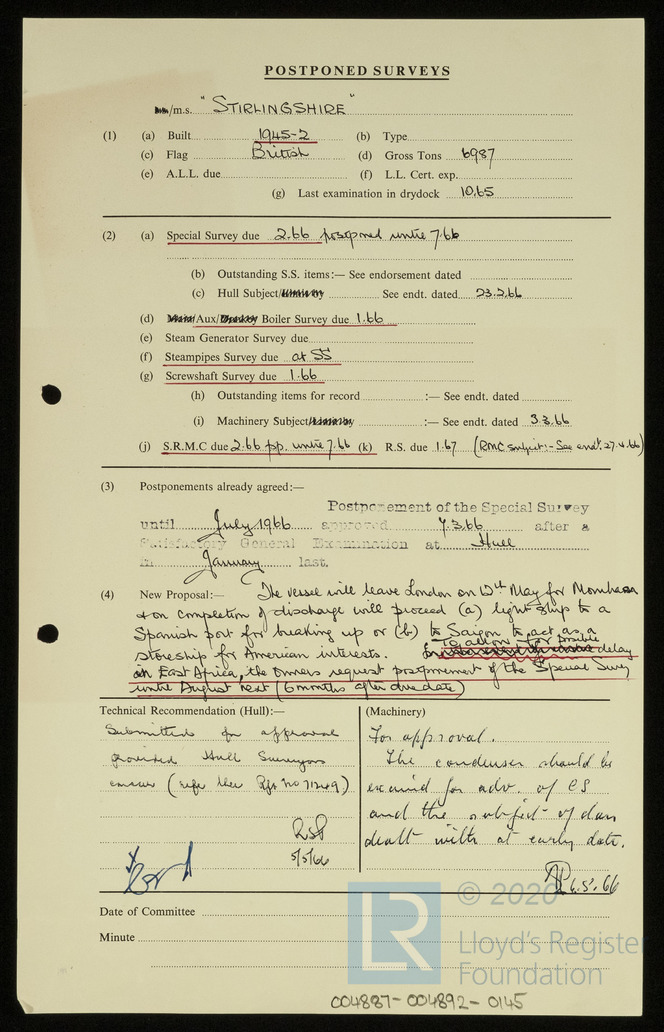 POSTPONED SURVEYS
/m.s. "STIRLINGSHIRE"
(1) (a) Built 1945-2 (b) Type
(c) Flag British (d) Gross Tons 6987
(e) A.L.L. due (f) L.L. Cert. exp.
(g) Last examination in drydock 10.65
(2) (a) Special Survey due 2.66 postponed until 7.66
(b) Outstanding S.S. items:— See endorsement dated
(c) Hull Subject/ See endt. dated 23.2.66
(d) Aux/ Boiler Survey due 1.66
(e) Steam Generator Survey due
(f) Steampipes Survey due at SS
(g) Screwshaft Survey due 1.66
(h) Outstanding items for record :— See endt. dated
(i) Machinery Subject/ :— See endt. dated 3.3.66
(j) S.R.M.C due 2.66 pp. until 7.66 (k) R.S. due 1.67 (RMC subject:- See endt. 27.4.66)
(3) Postponements already agreed:—
Postponement of the Special Survey
until July 1966 approved 7.3.66 after a
Satisfactory General Examination at Hull
in January last.
(4) New Proposal:— The vessel will leave London on 12th May for Mombasa
& on completion of discharge will proceed (a) light ship to a
Spanish port for breaking up or (b) to Saigon to act as a
storeship for American interests. To allow for possible delay
in East Africa, the Owners request postponement of the Special Survey
until August next (6 months after due date)
Technical Recommendation (Hull):— (Machinery)
Submitted for approval
provided Hull Surveyors
concur (refer their Rpt no 71249)
RSP
5/5/66
For approval.
The condenser should be
examined for adv. of CS
and the subject of dam
dealt with at early date.
6.5.66
Date of Committee
Minute
© 2020
Lloyd's Register
Foundation
LR
004887-004892-0145